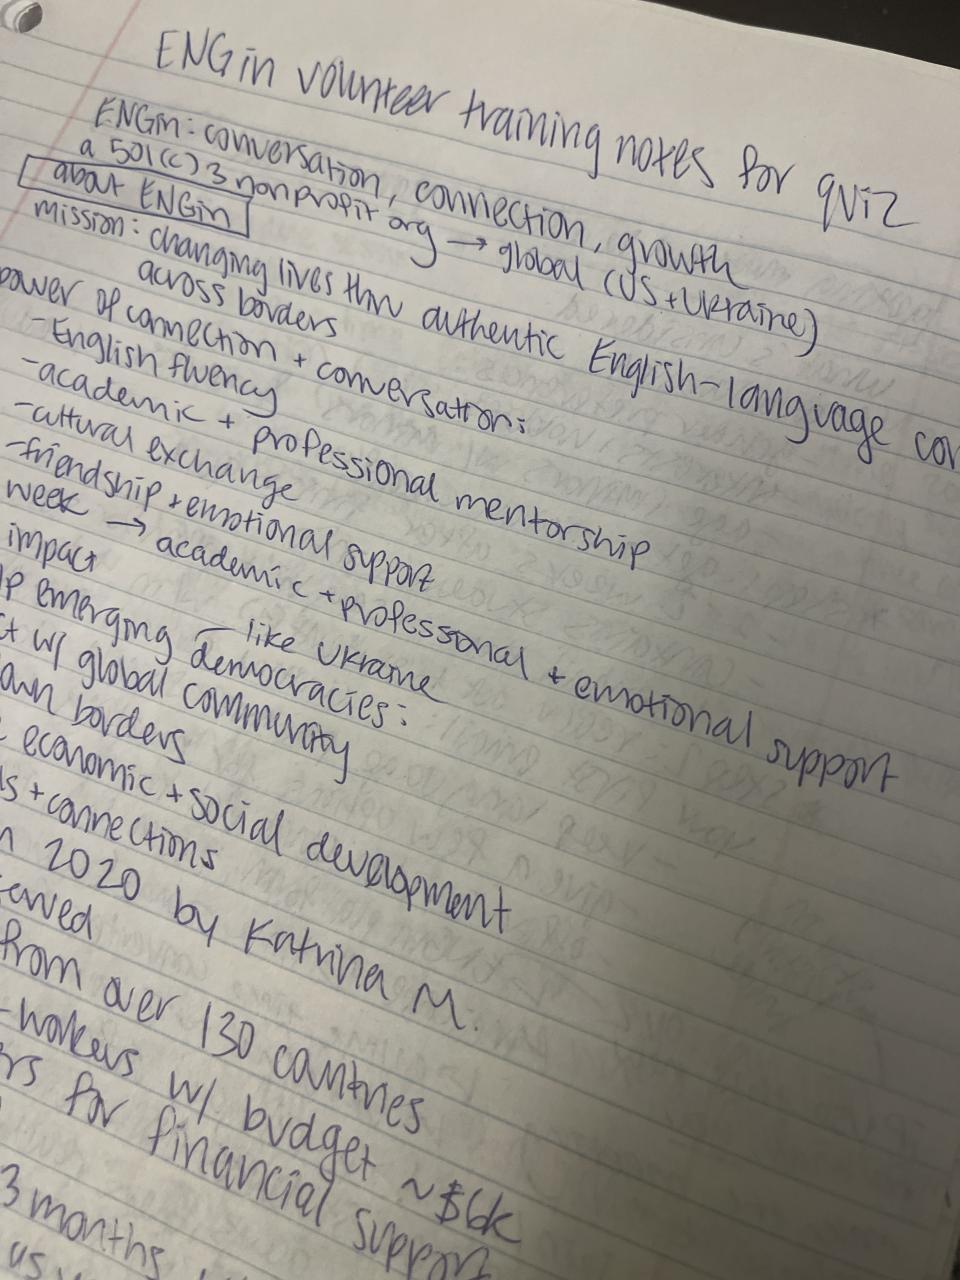 ENGin volunteer training notes for quiz
ENGin: conversation, connection, growth
a 501(c)3 nonprofit org → global (US + Ukraine)
about ENGin
mission: changing lives thru authentic English-language
across borders
power of connection + conversation:
- English fluency
- academic + professional mentorship
- cultural exchange
- friendship + emotional support
week → academic + professional + emotional support
impact
emerging democracies: like Ukraine
w/ global community
own borders
economic + social development
+ connections
2020 by Katrina M.
from over 130 countries
workers w/ budget ~$6k
for financial support
3 months
us